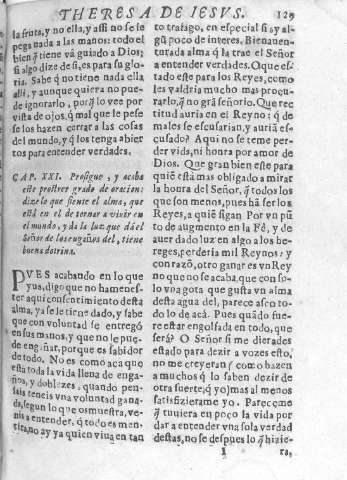 THERESA DE IESVS. 129
la fruta, y no ella, y assi no se le
pega nada a las manos: todo el
bien q̃ tiene vá guiado a Dios;
si algo dize de si, es para su glo-
ria. Sabe q̃ no tiene nada ella
alli, y aunque quiera no puede
de ignorarlo, porq̃ lo vee por
vista de ojos, q̃ mal que le pese
se los hazen cerrar a las cosas
del mundo, y q̃ los tenga abier
tos para entender verdades.
CAP. XXI. Prosigue, y acaba
este postrer grado de oracion:
dize lo que siente el alma, que
està en el de tornar a vivir en
el mundo, y da la luz que dà el
Señor de los engaños del, tiene
buena dotrina.
PVES acabando en lo que
yua, digo que no ha menes-
ter aqui consentimiento desta
alma, ya se le tiene dado, y sabe
que con voluntad se entregó
en sus manos, y que no le pue-
de engañar, porque es sabidor
de todo. No es como acà que
està toda la vida llena de enga-
ños, y doblezes, quando pen-
sais teneis vna voluntad gana-
da, segun lo que os muestra, ve-
nis a entender, q̃ todo es men-
tira, no ay ya quien viua en tan
to trafago, en especial si ay al-
gũ poco de interes. Bienauen-
turada alma q̃ la trae el Señor
a entender verdades. O que es-
tado este para los Reyes, como
les valdria mucho mas procu-
rarlo, q̃ no grã señorio. Que rec
titud auria en el Reyno: q̃ de
males se escusarian, y auriã es-
cusado? Aqui no se teme per-
der vida, ni honra por amor de
Dios. Que gran bien este para
quiẽ està mas obligado a mirar
la honra del Señor, q̃ todos los
que son menos, pues hã ser los
Reyes, a quiẽ sigan. Por vn pũ
to de augmento en la Fê, y de
auer dado luz en algo a los he-
reges, perderia mil Reynos; y
con razõ, otro ganar es vn Rey
no que no se acaba, que con so-
lo vna gota que gusta vn alma
desta agua del, parece asco to-
do lo de acá. Pues quãdo fue-
re estar engolfada en todo, que
serà? O Señor si me dierades
estado para dezir a vozes esto,
no me creyeran (como hazen
a muchos q̃ lo saben dezir de
otra suerte, q̃ yo) mas al menos
satisfizierame yo. Pareceme
q̃ tuuiera en poco la vida por
dar a entender vna sola verdad
destas, no se despues lo q̃ hizie-
I ra,